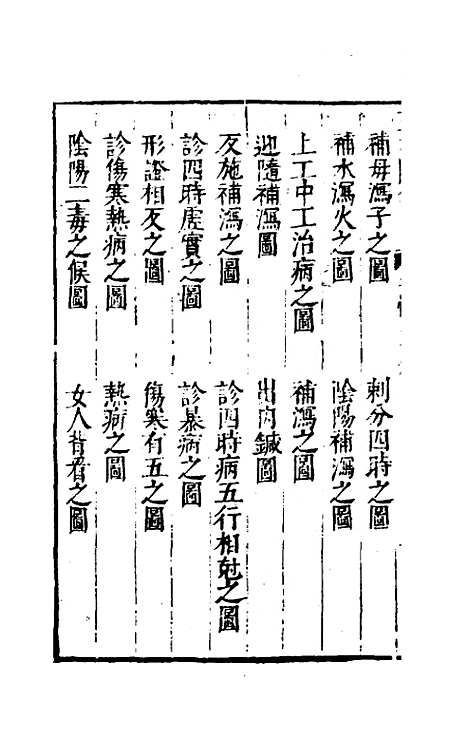 補母瀉子之圖　刺分四時之圖
補水瀉火之圖　陰陽補瀉之圖
上工中工治病之圖　補瀉之圖
迎隨補瀉圖　出內鍼圖
反施補瀉之圖　診四時病五行相尅之圖
診四時虛實之圖　診暴病之圖
形證相反之圖　傷寒有五之圖
診傷寒熱病之圖　熱病之圖
陰陽二毒之候圖　女人背看之圖